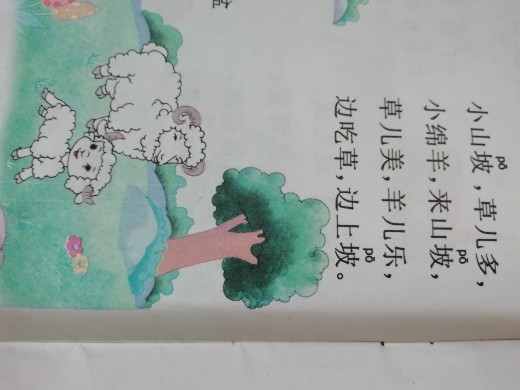 pō
小山坡，草儿多，
pō
小绵羊，来山坡，
草儿美，羊儿乐，
pō
边吃草，边上坡。